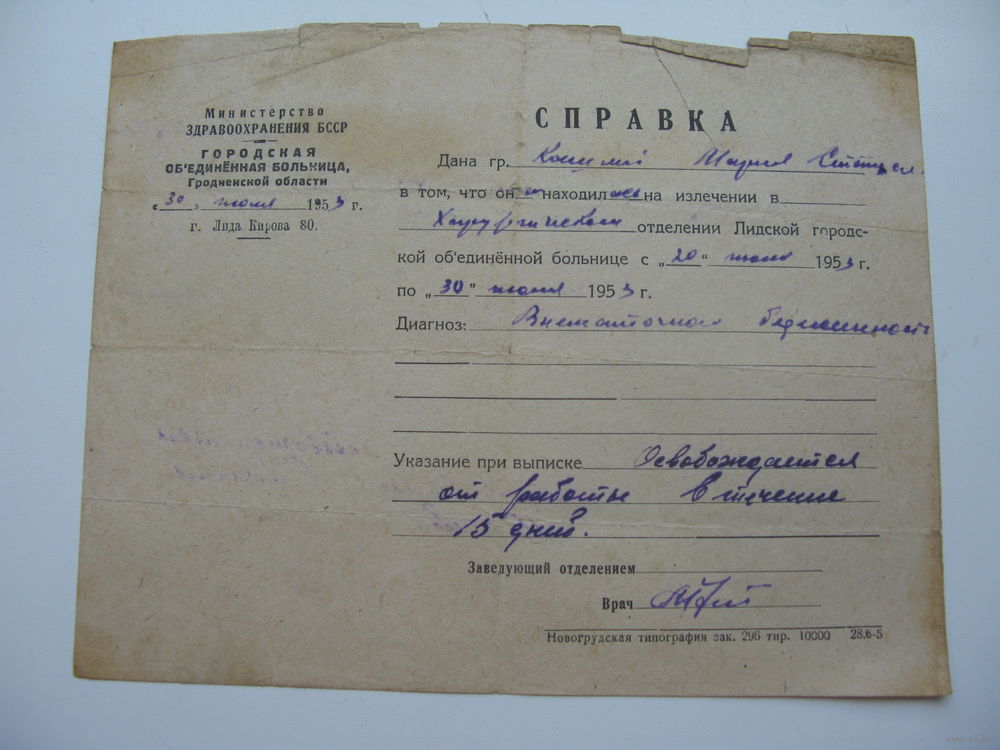 Министерство
ЗДРАВООХРАНЕНИЯ БССР
ГОРОДСКАЯ
ОБ'ЕДИНЁННАЯ БОЛЬНИЦА,
Гродненской области
„30" июня 1953 г.
г. Лида Кирова 80.
СПРАВКА
Дана гр.
в том, что она находилась на излечении в
Хирургическом отделении Лидской городс-
кой об'единённой больнице с „20" июня 1953 г.
по „30" июня 1953 г.
Диагноз: Внематочная беременность
Указание при выписке Освобождается
от работы в течение
15 дней.
Заведующий отделением
Врач
Новогрудская типография зак. 296 тир. 10000 28.6-5